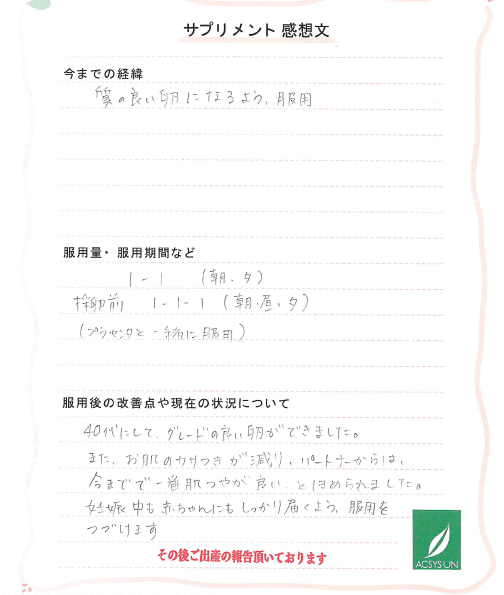 サプリメント 感想文
今までの経緯
質の良い卵になるよう、服用
服用量・服用期間など
1 - 1 (朝、夕)
採卵前 1 - 1 - 1 (朝、昼、夕)
(プラセンタと一緒に服用)
服用後の改善点や現在の状況について
40代にして、グレードの良い卵ができました。
また、お肌のカサつきが減り、パートナーからは、
今までで一番肌つやが良い、とほめられました。
妊娠中も赤ちゃんにもしっかり届くよう、服用を
つづけます
その後ご出産の報告頂いております
ACSYSUN